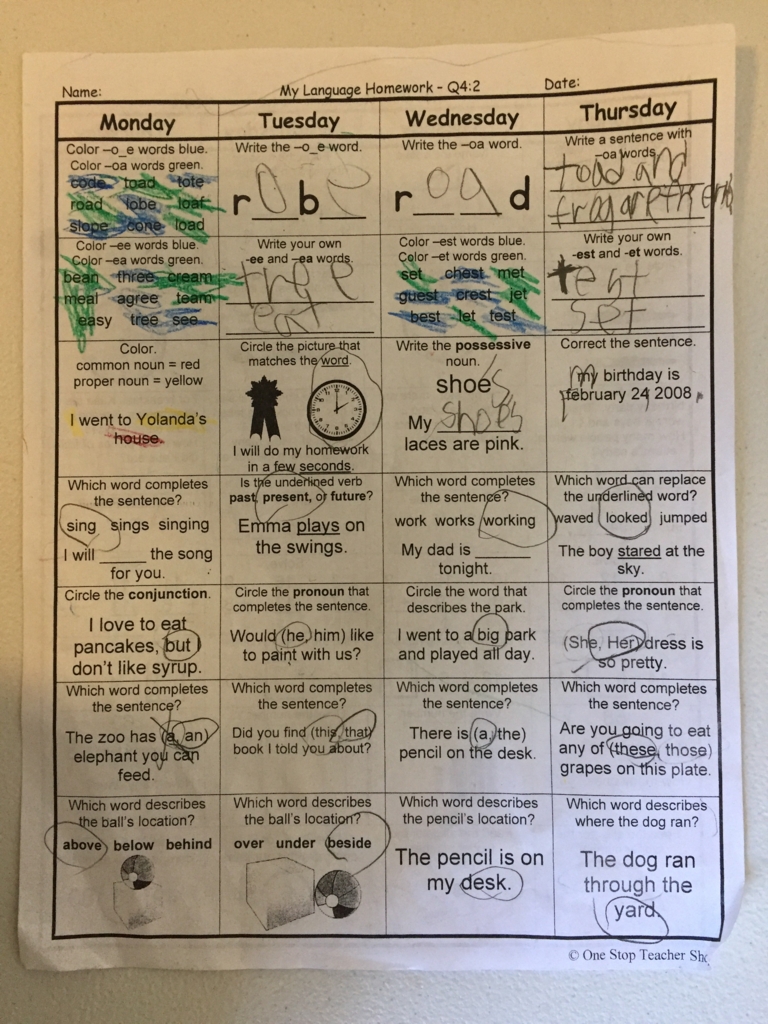 Name: My Language Homework - Q4:2 Date:
Monday Tuesday Wednesday Thursday
Color –o_e words blue.
Color –oa words green.
code toad tote
road lobe loaf
slope cone load
Write the –o_e word.
r o b e
Write the –oa word.
r o a d
Write a sentence with
–oa words
toad and
Color –ee words blue.
Color –ea words green.
bean three cream
meal agree team
easy tree see
Write your own
-ee and –ea words.
tree
eat
Color –est words blue.
Color –et words green.
set chest met
guest crest jet
best let test
Write your own
-est and -et words.
test
set
Color.
common noun = red
proper noun = yellow
I went to Yolanda's
house.
Circle the picture that
matches the word.
I will do my homework
in a few seconds.
Write the possessive
noun.
shoes
My shoes
laces are pink.
Correct the sentence.
my birthday is
february 24, 2008.
Which word completes
the sentence?
sing sings singing
I will _____ the song
for you.
Is the underlined verb
past, present, or future?
Emma plays on
the swings.
Which word completes
the sentence?
work works working
My dad is ______
tonight.
Which word can replace
the underlined word?
waved looked jumped
The boy stared at the
sky.
Circle the conjunction.
I love to eat
pancakes, but I
don't like syrup.
Circle the pronoun that
completes the sentence.
Would (he, him) like
to paint with us?
Circle the word that
describes the park.
I went to a big park
and played all day.
Circle the pronoun that
completes the sentence.
(She, Her) dress is
so pretty.
Which word completes
the sentence?
The zoo has (a, an)
elephant you can
feed.
Which word completes
the sentence?
Did you find (this, that)
book I told you about?
Which word completes
the sentence?
There is (a, the)
pencil on the desk.
Which word completes
the sentence?
Are you going to eat
any of (these, those)
grapes on this plate.
Which word describes
the ball's location?
above below behind
Which word describes
the ball's location?
over under beside
Which word describes
the pencil's location?
The pencil is on
my desk.
Which word describes
where the dog ran?
The dog ran
through the
yard.
© One Stop Teacher Sh